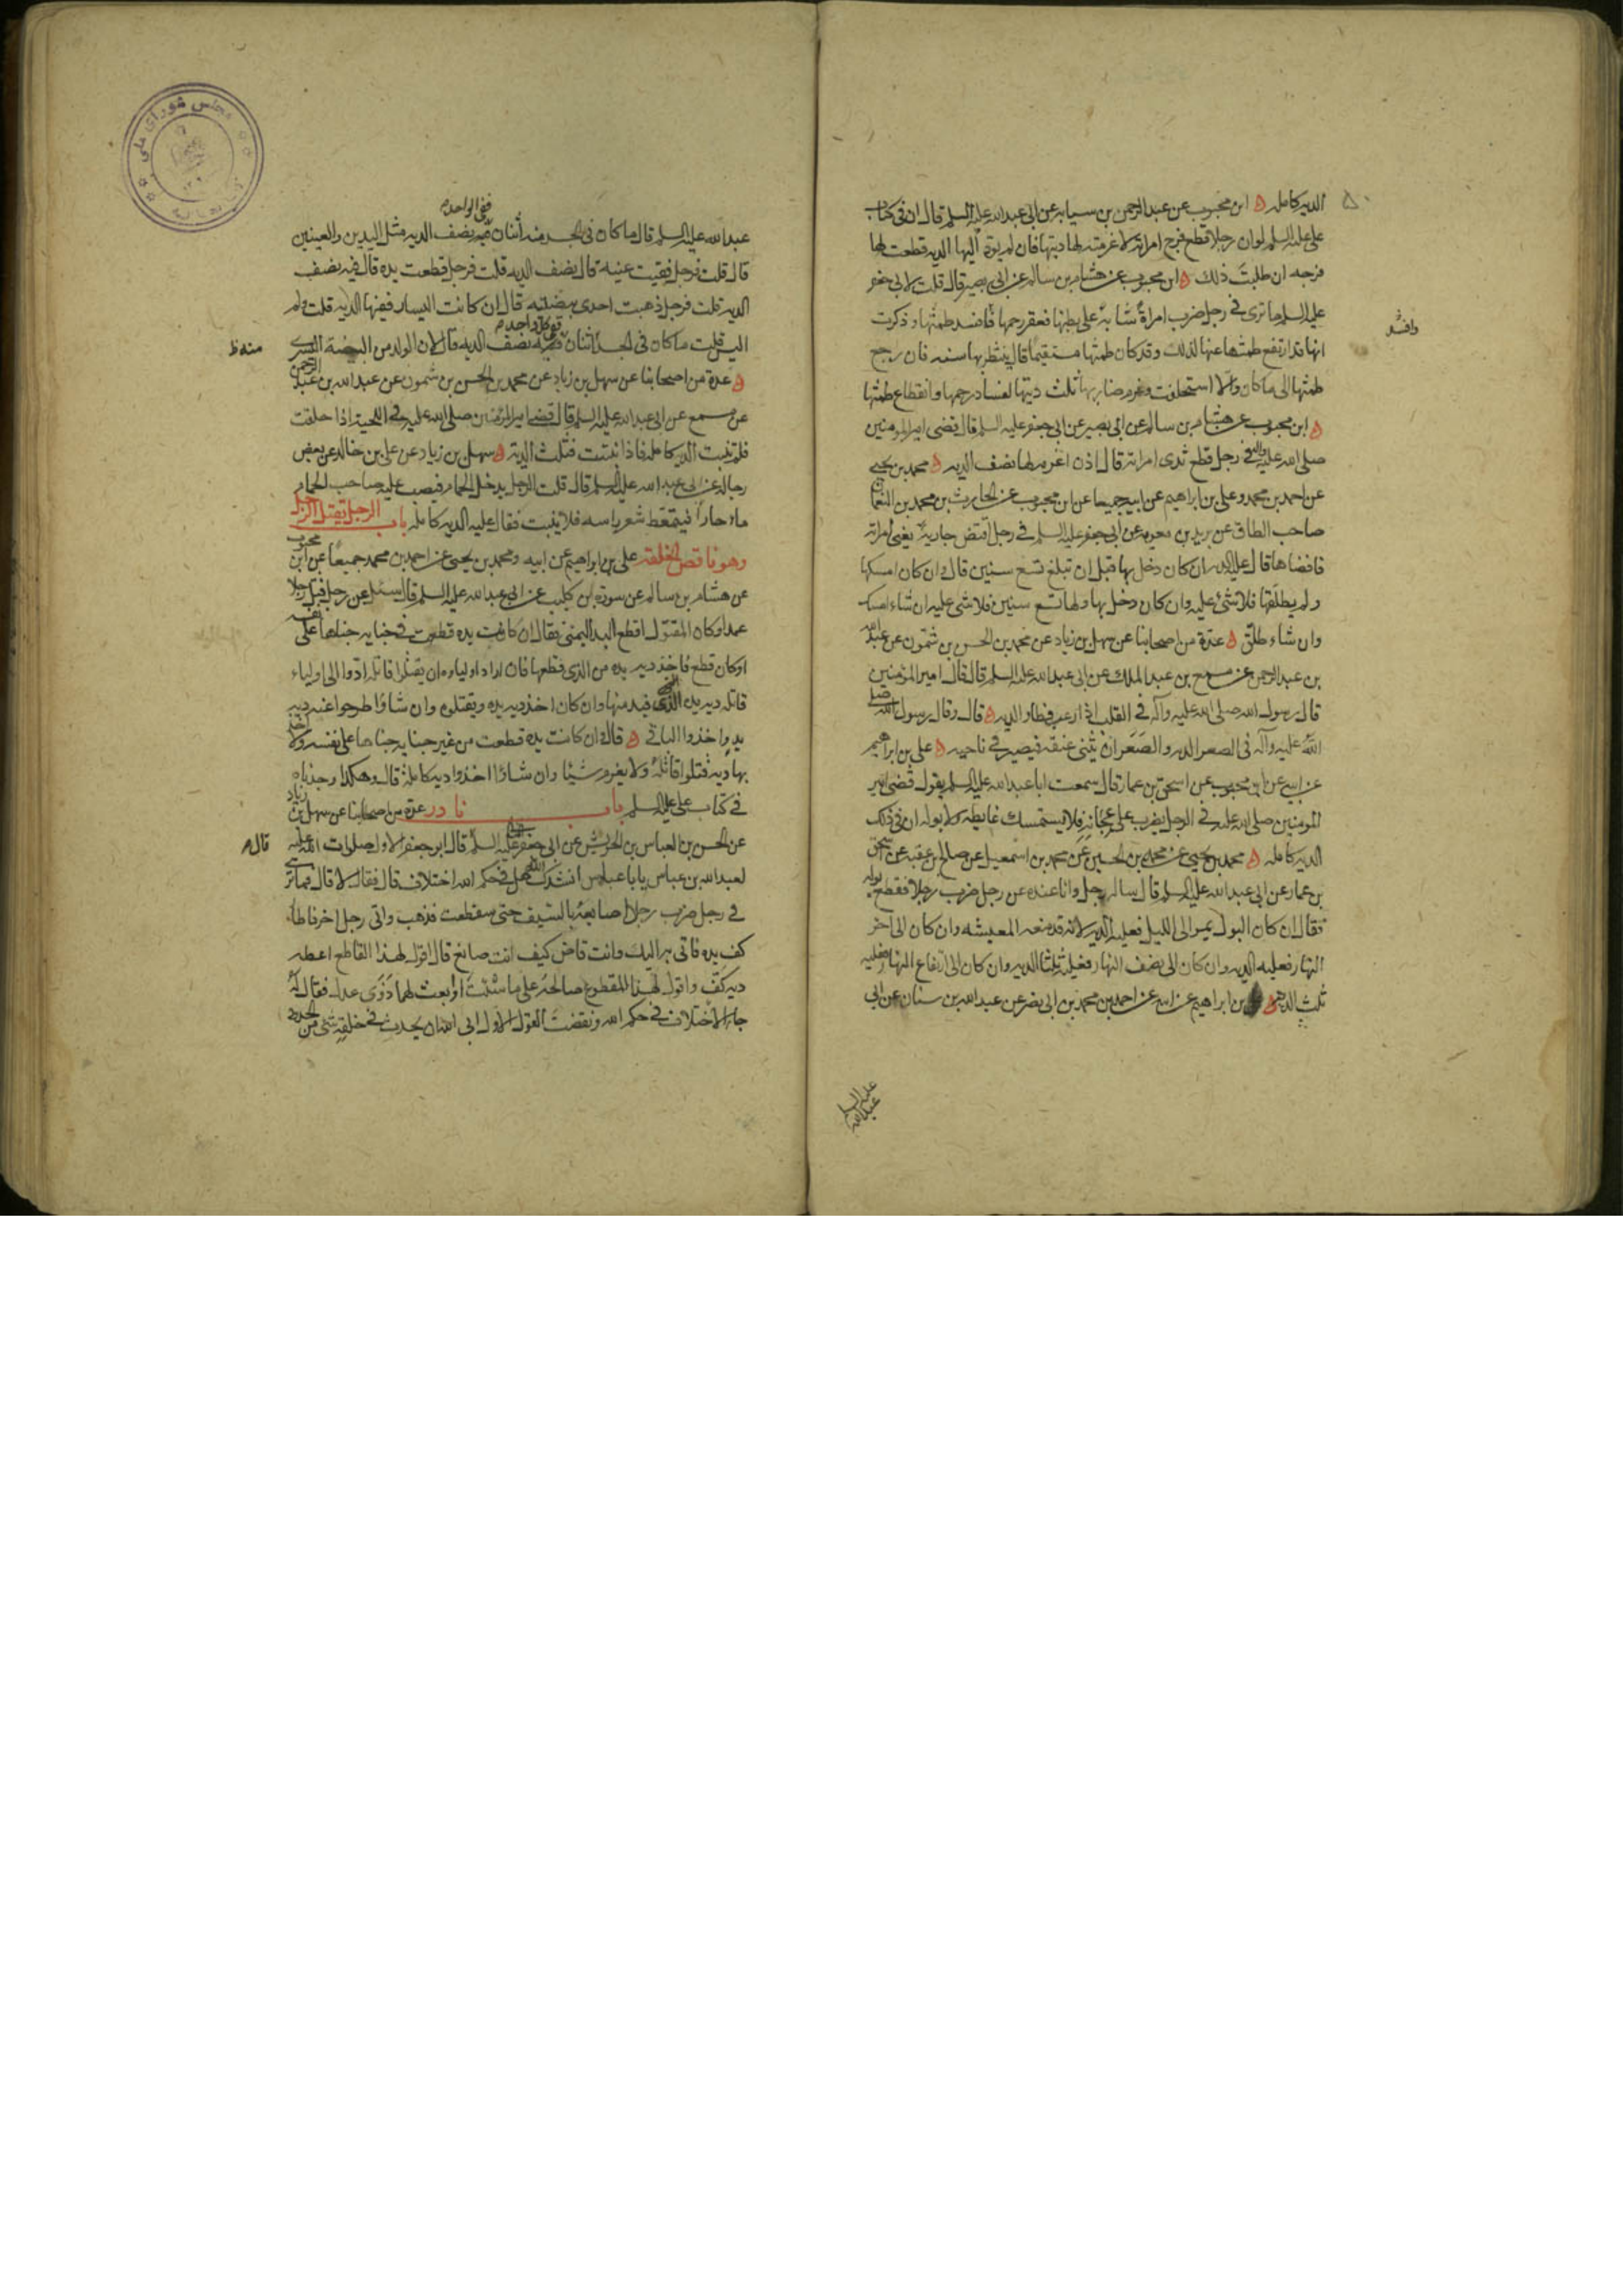 الديه كامله ابن محبوب عن عبد الرحمن بن سيابه عن ابى عبد الله عليه السلم قال ان فى كتاب
على عليه السلم لو ان رجلا قطع فرج امراته لاغرمته لها ديتها فان لم يؤد اليها الديه قطعت لها
فرجه ان طلبت ذلك ابن محبوب عن هشام بن سالم عن ابى بصير قال قلت لابى جعفر
عليه السلم ما ترى فى رجل ضرب امراة شابة على بطنها فعقر رحمها فافسد طمثها وذكرت
وافسد
انها قد ارتفع طمثها عنها لذلك وقد كان طمثها مستقيما قال ينتظر بها سنه فان رجع
طمثها الى ما كان والا استحلفت وغرم ضاربها ثلث ديتها لفساد رحمها وانقطاع طمثها
ابن محبوب عن هشام بن سالم عن ابى بصير عن ابى جعفر عليه السلم قال قضى امير المومنين
صلى الله عليه فى رجل قطع ثدى امراته قال اذن اغرمه لها نصف الديه محمد بن يحيى
عن احمد بن محمد وعلى بن ابراهيم عن ابيه جميعا عن ابن محبوب عن الحارث بن محمد بن النعمان
صاحب الطاق عن بريد بن معويه عن ابى جعفر عليه السلم فى رجل اقتض جارية يعنى امراته
فافضاها قال عليه الديه ان كان دخل بها قبل ان تبلغ تسع سنين قال وان كان امسكها
ولم يطلقها فلا شئ عليه وان كان دخل بها ولها تسع سنين فلا شئ عليه ان شاء امسك
وان شاء طلق عدة من اصحابنا عن سهل بن زياد عن محمد بن الحسن بن شمون عن عبد الله
بن عبد الرحمن عن مسمع بن عبد الملك عن ابى عبد الله عليه السلم قال قال امير المؤمنين
قال رسول الله صلى الله عليه وآله فى القلب اذا ارعب فطار الديه قال وقال رسول الله صلى
الله عليه وآله فى الصعر الديه والصعر ان يثنى عنقه فيصير فى ناحيه على بن ابراهيم
عن ابيه عن ابن محبوب عن اسحق بن عمار قال سمعت ابا عبد الله عليه السلم يقول قضى امير
المومنين صلى الله عليه فى الرجل يضرب على عجانه فلا يستمسك غايطه ولا بوله ان فى ذلك
الديه كامله محمد بن يحيى عن محمد بن الحسين عن محمد بن اسمعيل عن صالح بن عقبه عن اسحق
بن عمار عن ابى عبد الله عليه السلم قال ساله رجل وانا عنده عن رجل ضرب رجلا فقطع بوله
فقال ان كان البول يمر الى الليل فعليه الديه لانه قد منعه المعيشه وان كان الى اخر
النهار فعليه الديه وان كان الى نصف النهار فعليه ثلثا الديه وان كان الى ارتفاع النهار فعليه
ثلث الديه على بن ابراهيم عن ابيه عن احمد بن محمد بن ابى نصر عن عبد الله بن سنان عن ابى
عبد الله عليه السلم
ففى الواحده
عبد الله عليه السلم قال ما كان فى الجسد منه اثنان فيه نصف الديه مثل اليدين والعينين
قال قلت فرجل فقيت عينه قال نصف الديه قلت فرجل قطعت يده قال فيه نصف
الديه قلت فرجل ذهبت احدى بيضتيه قال ان كانت اليسار ففيها الديه قلت ولم
اليس قلت ما كان فى الجسد اثنان ففيه نصف الديه قال لان الولد من البيضة اليسرى
عدة من اصحابنا عن سهل بن زياد عن محمد بن الحسن بن شمون عن عبد الله بن عبد الرحمن
عن مسمع عن ابى عبد الله عليه السلم قال قضى امير المؤمنين صلى الله عليه فى اللحية اذا حلقت
فلم تنبت الديه كامله فاذا نبتت فثلث الدية سهل بن زياد عن على بن خالد عن بعض
رجاله عن ابى عبد الله عليه السلم قال قلت الرجل يدخل الحمام فيصب عليه صاحب الحمام
ماء حارا فيتمعط شعر راسه فلا ينبت فقال عليه الديه كامله باب الرجل يقتل الرجل
وهو ناقص الخلقه على بن ابراهيم عن ابيه ومحمد بن يحيى عن احمد بن محمد جميعا عن ابن محبوب
عن هشام بن سالم عن سورة بن كليب عن ابى عبد الله عليه السلم قال سئل عن رجل قتل رجلا
عمدا وكان المقتول اقطع اليد اليمنى فقال ان كانت يده قطعت فى جنايه جناها على نفسه
او كان قطع فاخذ ديه يده من الذى قطعها فان اراد اولياوه ان يقتلوا قاتله ادوا الى اولياء
قاتله ديه يده الذى قيد منها وان كان اخذ ديه يده ويقتلوه وان شاؤا طرحوا عنه ديه
يد واخذوا الباقى قال وان كانت يده قطعت من غير جنايه جناها على نفسه ولا اخذ
بها دية قتلوا قاتله ولا يغرم شيئا وان شاؤا اخذوا ديه كاملة قال وهكذا وجدناه
فى كتاب على عليه السلم باب نادر عدة من اصحابنا عن سهل بن زياد
عن الحسن بن العباس بن الحريش عن ابى جعفر عليه السلم قال ابو جعفر الاول صلوات الله عليه
قال
لعبد الله بن عباس يا با عباس انشدك الله هل فى حكم الله اختلاف قال فقال لا قال فما ترى
فى رجل ضرب رجلا اصابعه بالسيف حتى سقطت فذهب واتى رجل اخر فاطار
كف يده فاتى به اليك وانت قاض كيف انت صانع قال اقول لهذا القاطع اعطه
ديه كف واقول لهذا المقطوع صالحه على ما شئت او ابعث لهما ذوى عدل فقال له
جاء الاختلاف فى حكم الله ونقضت القول الاول ابى الله ان يحدث فى خلقه شئ من الحدود